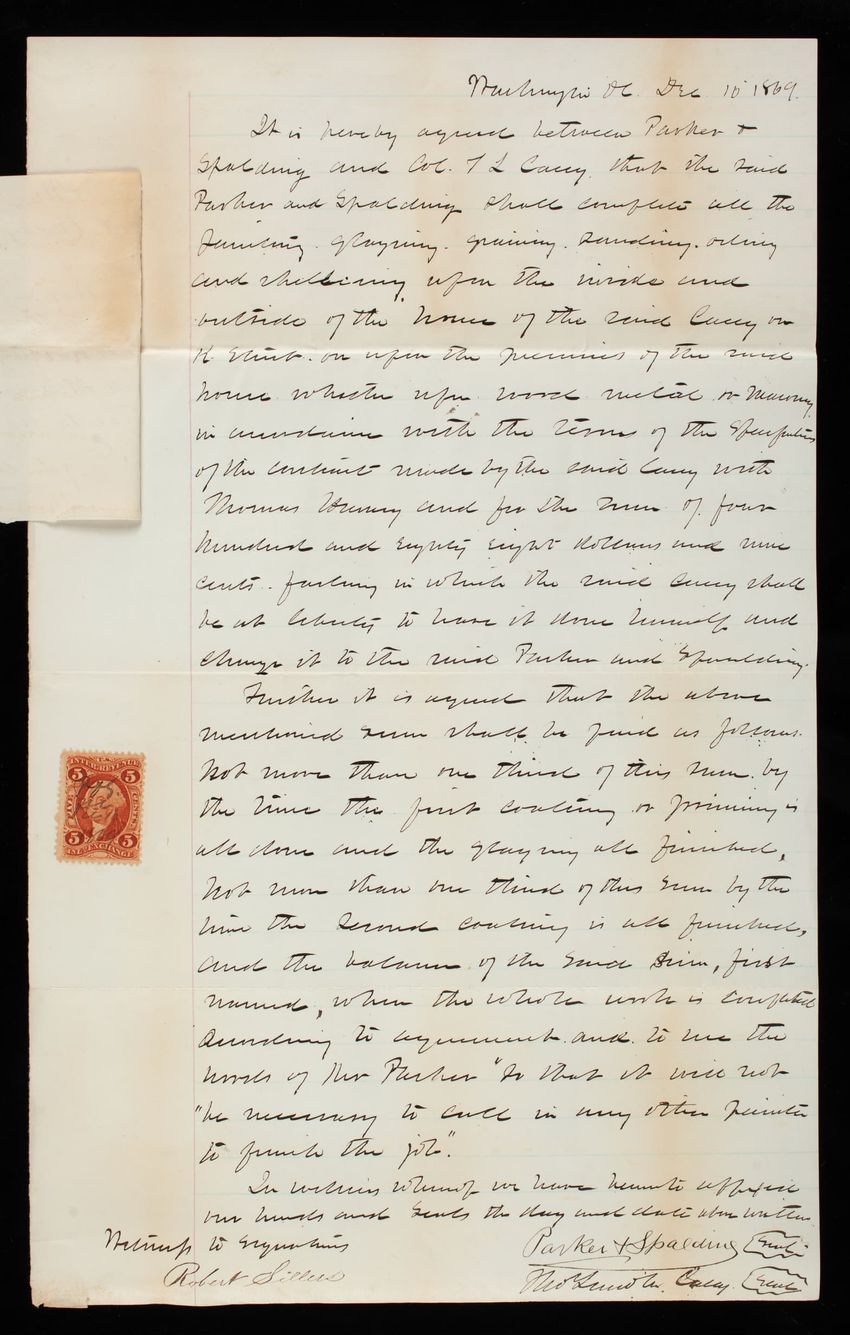 Washington DC. Dec 10 1869.
It is hereby agreed between Parker &
Spalding and Col. T L Casey, that the said
Parker and Spalding shall complete all the
painting. glazing. graining. sanding. oiling
and shellacing upon the inside and
outside of the house of the said Casey on
K Street. or upon the premises of the said
house whether upon wood metal or masonry
in accordance with the terms of the specifications
of the contract made by the said Casey with
Thomas and for the sum of four
hundred and Eighty Eight dollars and nine
cents. failing in which the said Casey shall
be at liberty to have it done himself and
charge it to the said Parker and Spaulding.
Further it is agreed that the above
mentioned sum shall be paid as follows.
Not more than one third of this sum. by
the time the first coating or priming is
all done and the glazing all finished,
Not more than one third of this Sum by the
time the Second coating is all finished,
and the balance of the Said Sum, first
named, when the whole work is completed
According to agreement. and. to use the
words of Mr Parker "So that it will not
"be necessary to call in any other painter
to finish the job".
In witness whereof we have hereunto affixed
our hands and Seals the day and date above written
Witness to Signatures
Parker & Spalding Seal
Robert Sillers
Thos Lincoln Casey. Seal
INTER. REVENUE
5 5
5 5
INL. EXCHANGE